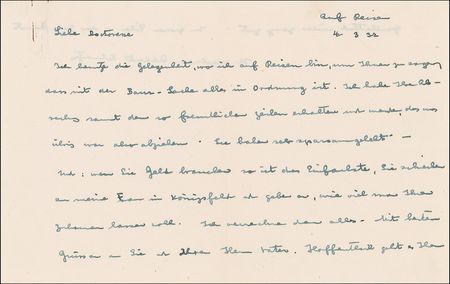 Auf Reisen
4. 3 32
Liebe Doctorese
Ich benutze die Gelegenheit, wo ich auf Reisen bin, um Ihnen zu sagen,
dass mit der Bauer-Sache alles in Ordnung ist. Ich habe Ihre Ab-
samt den so freundlichen Zeilen erhalten und werde, das was
übrig war abziehen. Sie haben sehr sparsam gelebt —
Nur: wenn Sie Geld brauchen so ist das Einfachste, Sie schreiben
an meine Frau in Königsfeld und geben an, wie viel man Ihnen
zukommen lassen soll. Ich verrechne dann alles. Mit besten
Grüssen an Sie und Ihren Herrn Vater. Hoffentlich geht es Ihm